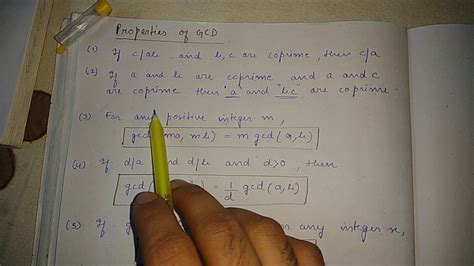 Properties of GCD
(1) If c/ab and b, c are coprime, then c/a
(2) If a and b are coprime and a and c
are coprime then "a" and "bc" are coprime.
(3) For any positive integer m,
gcd (ma, mb) = m gcd (a, b)
(4) If d/a and d/b and d>0, then
gcd ( ) = 1/d gcd (a, b)
(5) If g any integer x,